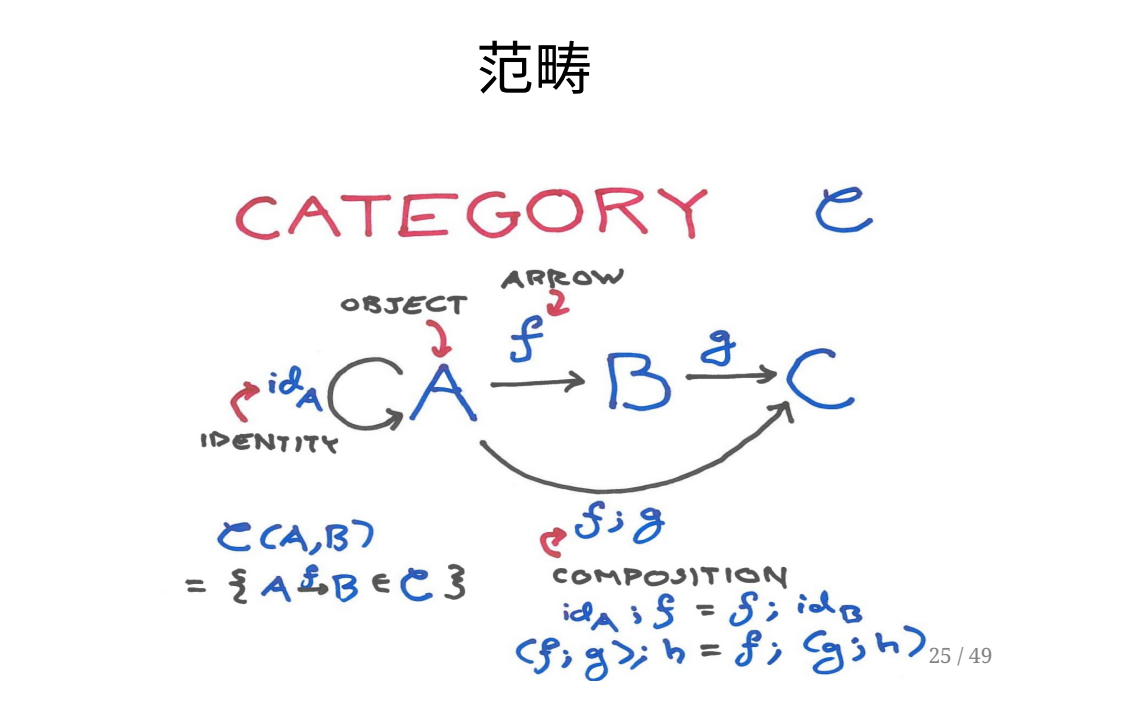 范畴
CATEGORY 𝒞
ARROW
OBJECT
f
g
id_A A B C
IDENTITY
f;g
𝒞(A,B)
= { A f→ B ∈ 𝒞 }
COMPOSITION
id_A ; f = f ; id_B
(f; g); h = f; (g; h)
25 / 49